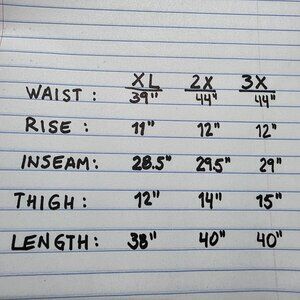 XL 2X 3X
WAIST: 39" 44" 44"
RISE: 11" 12" 12"
INSEAM: 28.5" 29.5" 29"
THIGH: 12" 14" 15"
LENGTH: 38" 40" 40"